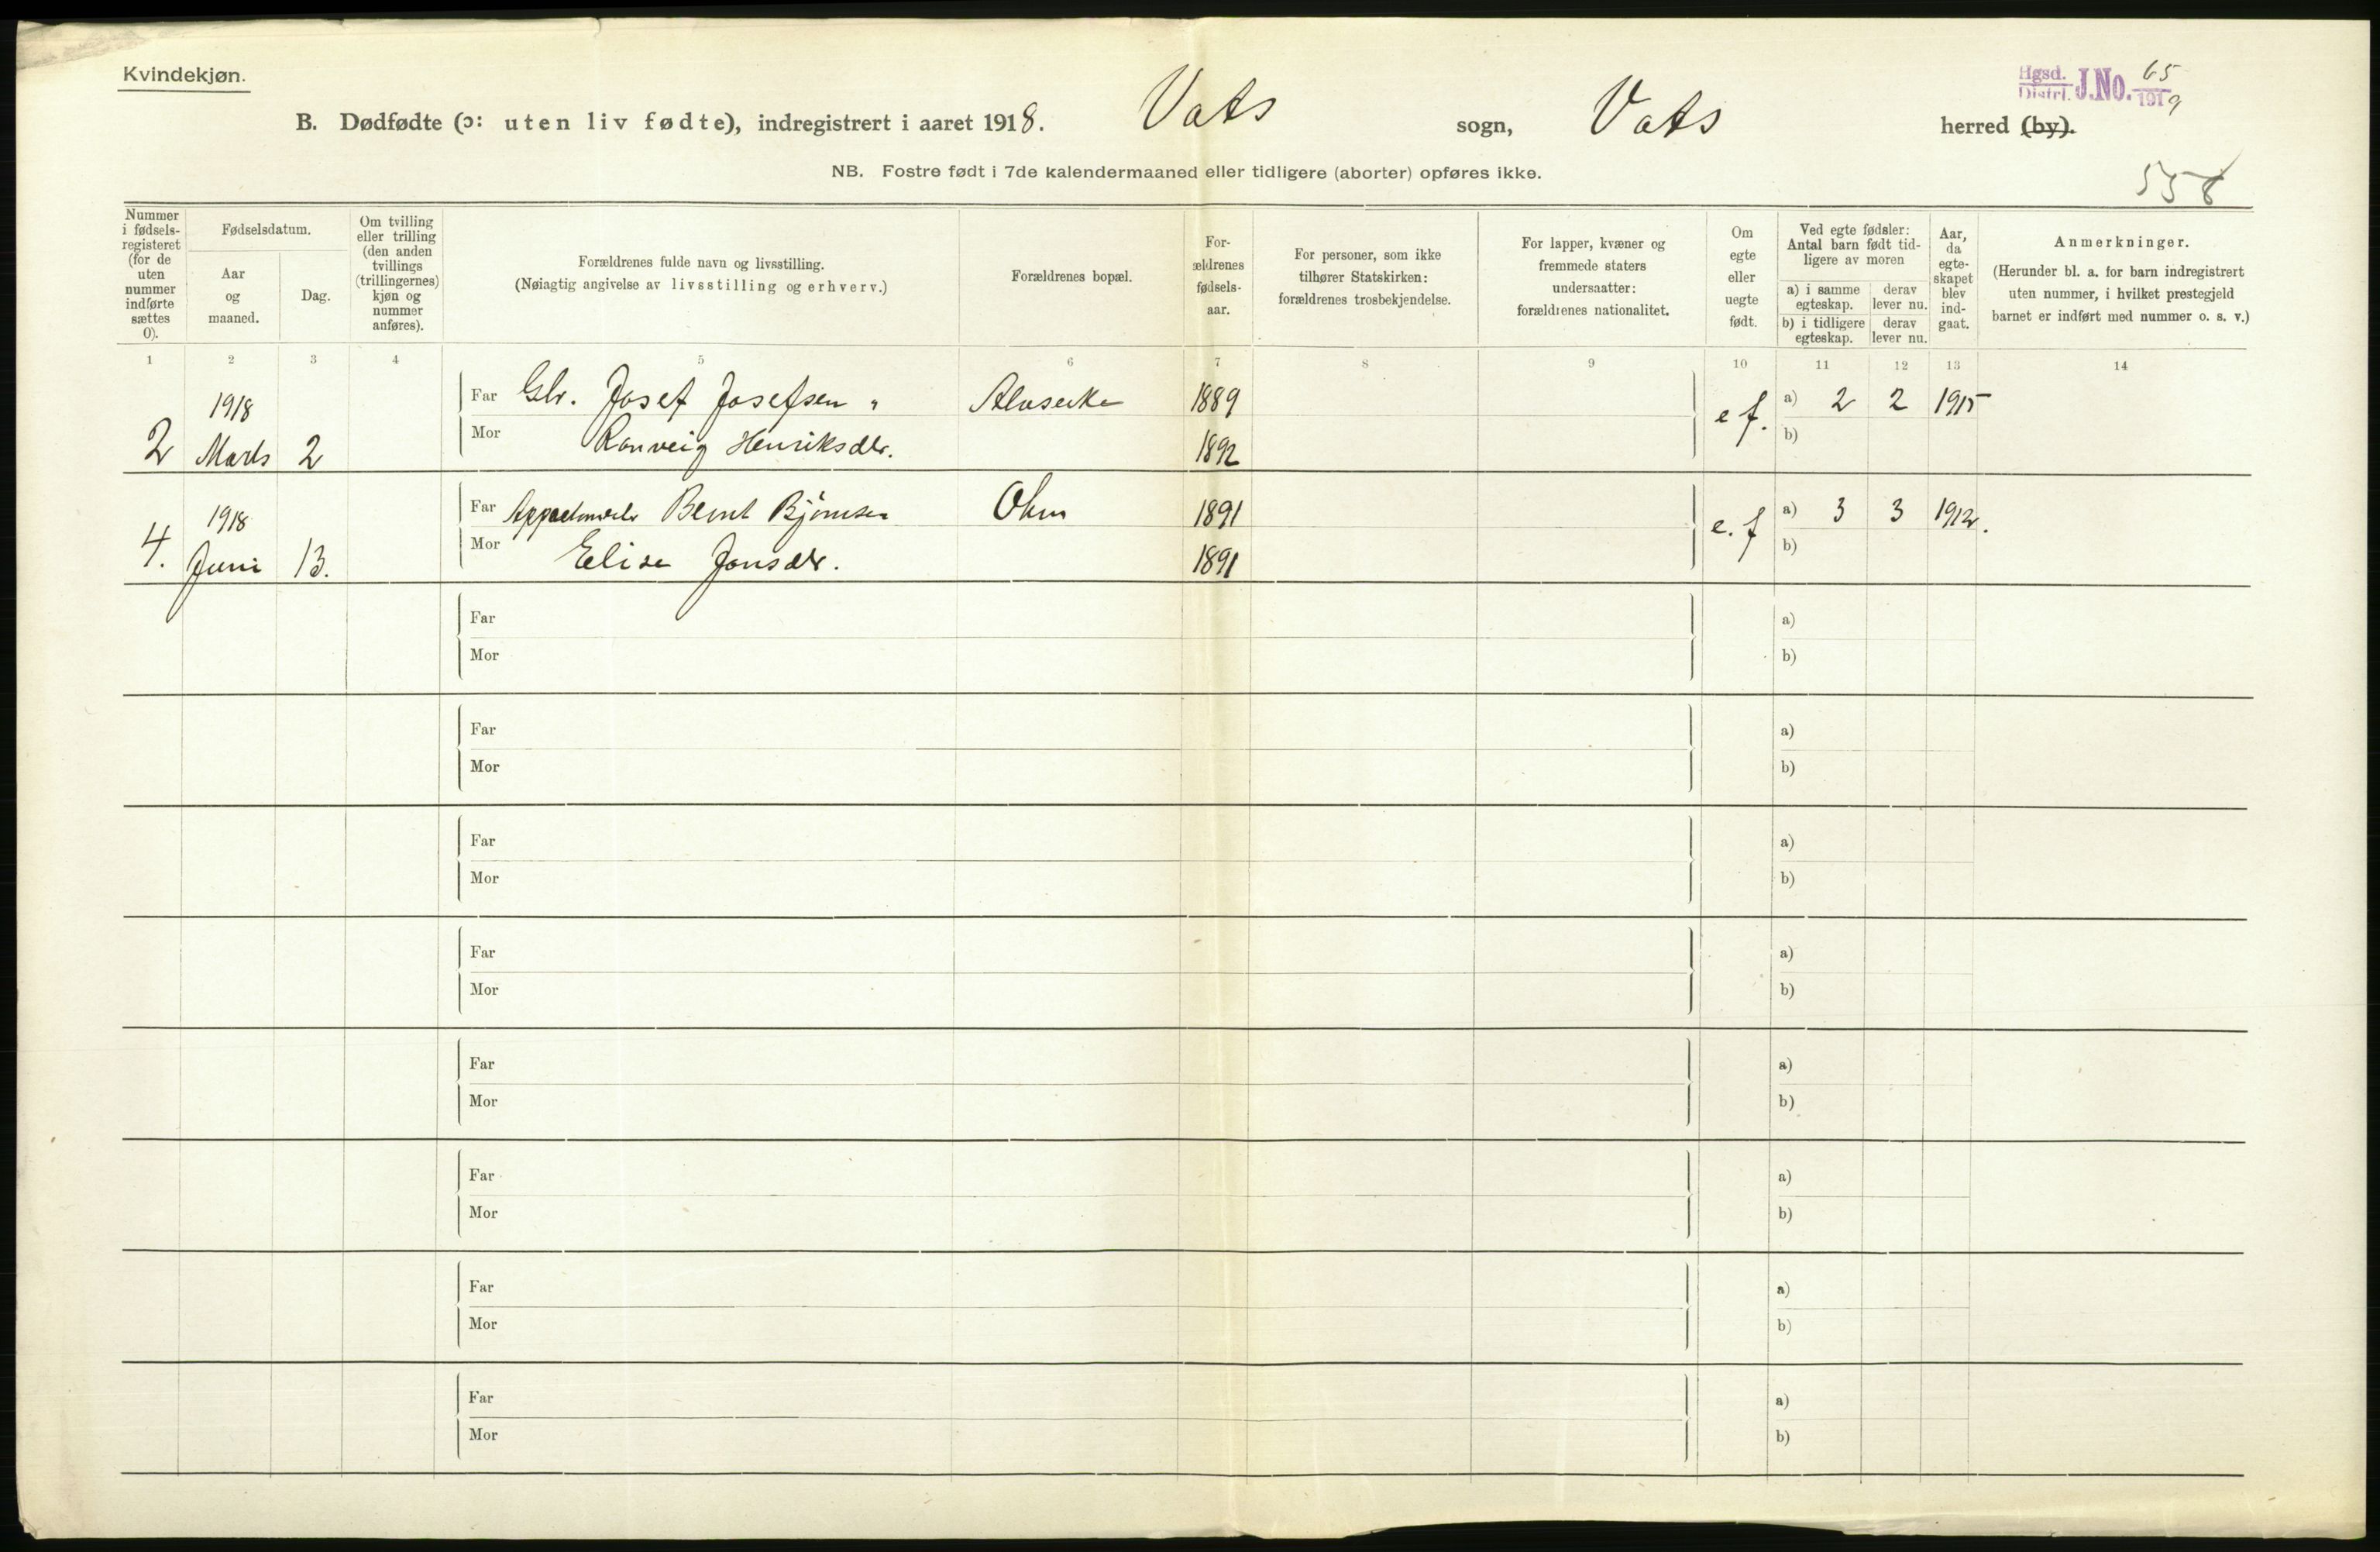 Kvindekjøn.
Hgsd. Distri. J.No. 65 1919
B. Dødfødte (ɔ: uten liv fødte), indregistrert i aaret 1918. Vats sogn, Vats herred (by).
NB. Fostre født i 7de kalendermaaned eller tidligere (aborter) opføres ikke.
558
Nummer i fødsels-registeret (for de uten nummer indførte sættes 0).
Fødselsdatum.
Aar og maaned.
Dag.
Om tvilling eller trilling (den anden tvillings (trillingernes) kjøn og nummer anføres).
Forældrenes fulde navn og livsstilling.
(Nøiagtig angivelse av livsstilling og erhverv.)
Forældrenes bopæl.
For-ældrenes fødsels-aar.
For personer, som ikke tilhører Statskirken: forældrenes trosbekjendelse.
For lapper, kvæner og fremmede staters undersaatter: forældrenes nationalitet.
Om egte eller uegte født.
Ved egte fødsler: Antal barn født tid-ligere av moren
a) i samme egteskap. derav lever nu.
b) i tidligere egteskap. derav lever nu.
Aar, da egte-skapet blev ind-gaat.
Anmerkninger.
(Herunder bl. a. for barn indregistrert uten nummer, i hvilket prestegjeld barnet er indført med nummer o. s. v.)
1 2 3 4 5 6 7 8 9 10 11 12 13 14
1918 Far Gbr. Josef Josefsen 1889 e f. a) 2 2 1915
2 Marts 2 Mor Ranveig Henriksdtr. 1892 b)
1918 Far Bernt Bjørnsen 1891 e. f a) 3 3 1912.
4. Juni 13. Mor Elise Jonsdtr. 1891 b)
Far a)
Mor b)
Far a)
Mor b)
Far a)
Mor b)
Far a)
Mor b)
Far a)
Mor b)
Far a)
Mor b)
Far a)
Mor b)
Far a)
Mor b)